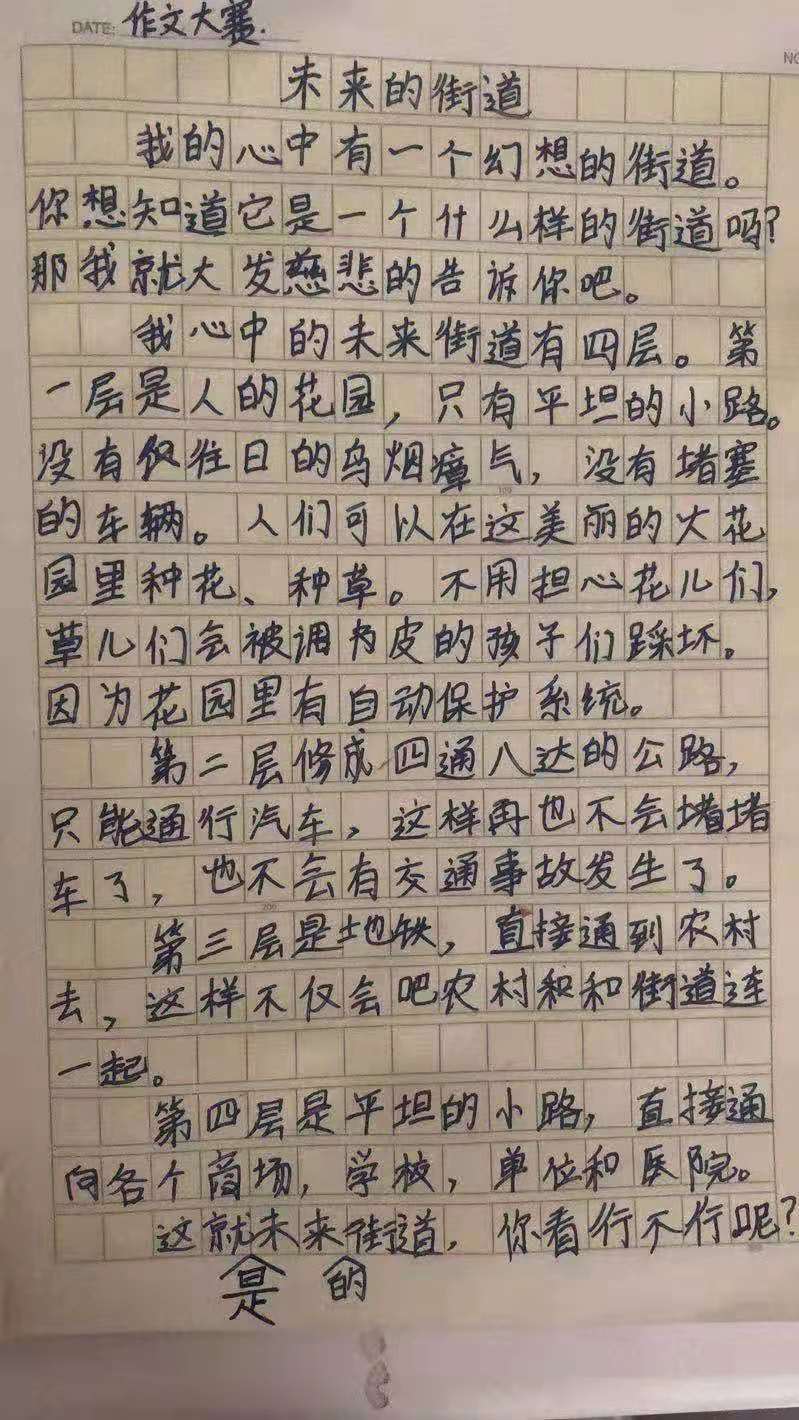 DATE: 作文大赛.
NO
未来的街道
我的心中有一个幻想的街道。
你想知道它是一个什么样的街道吗?
那我就大发慈悲的告诉你吧。
我心中的未来街道有四层。第
一层是人的花园，只有平坦的小路。
没有仅往日的乌烟瘴气，没有堵塞
的车辆。人们可以在这美丽的大花
园里种花、种草。不用担心花儿们,
草儿们会被调为皮的孩子们踩坏。
因为花园里有自动保护系统。
第二层修成四通八达的公路，
只能通行汽车，这样再也不会堵堵
车了，也不会有交通事故发生了。
第三层是地铁，直接通到农村
去，这样不仅会吧农村和和街道连
一起。
第四层是平坦的小路，直接通
向各个商场，学校，单位和医院。
这就是未来的街道，你看行不行呢?